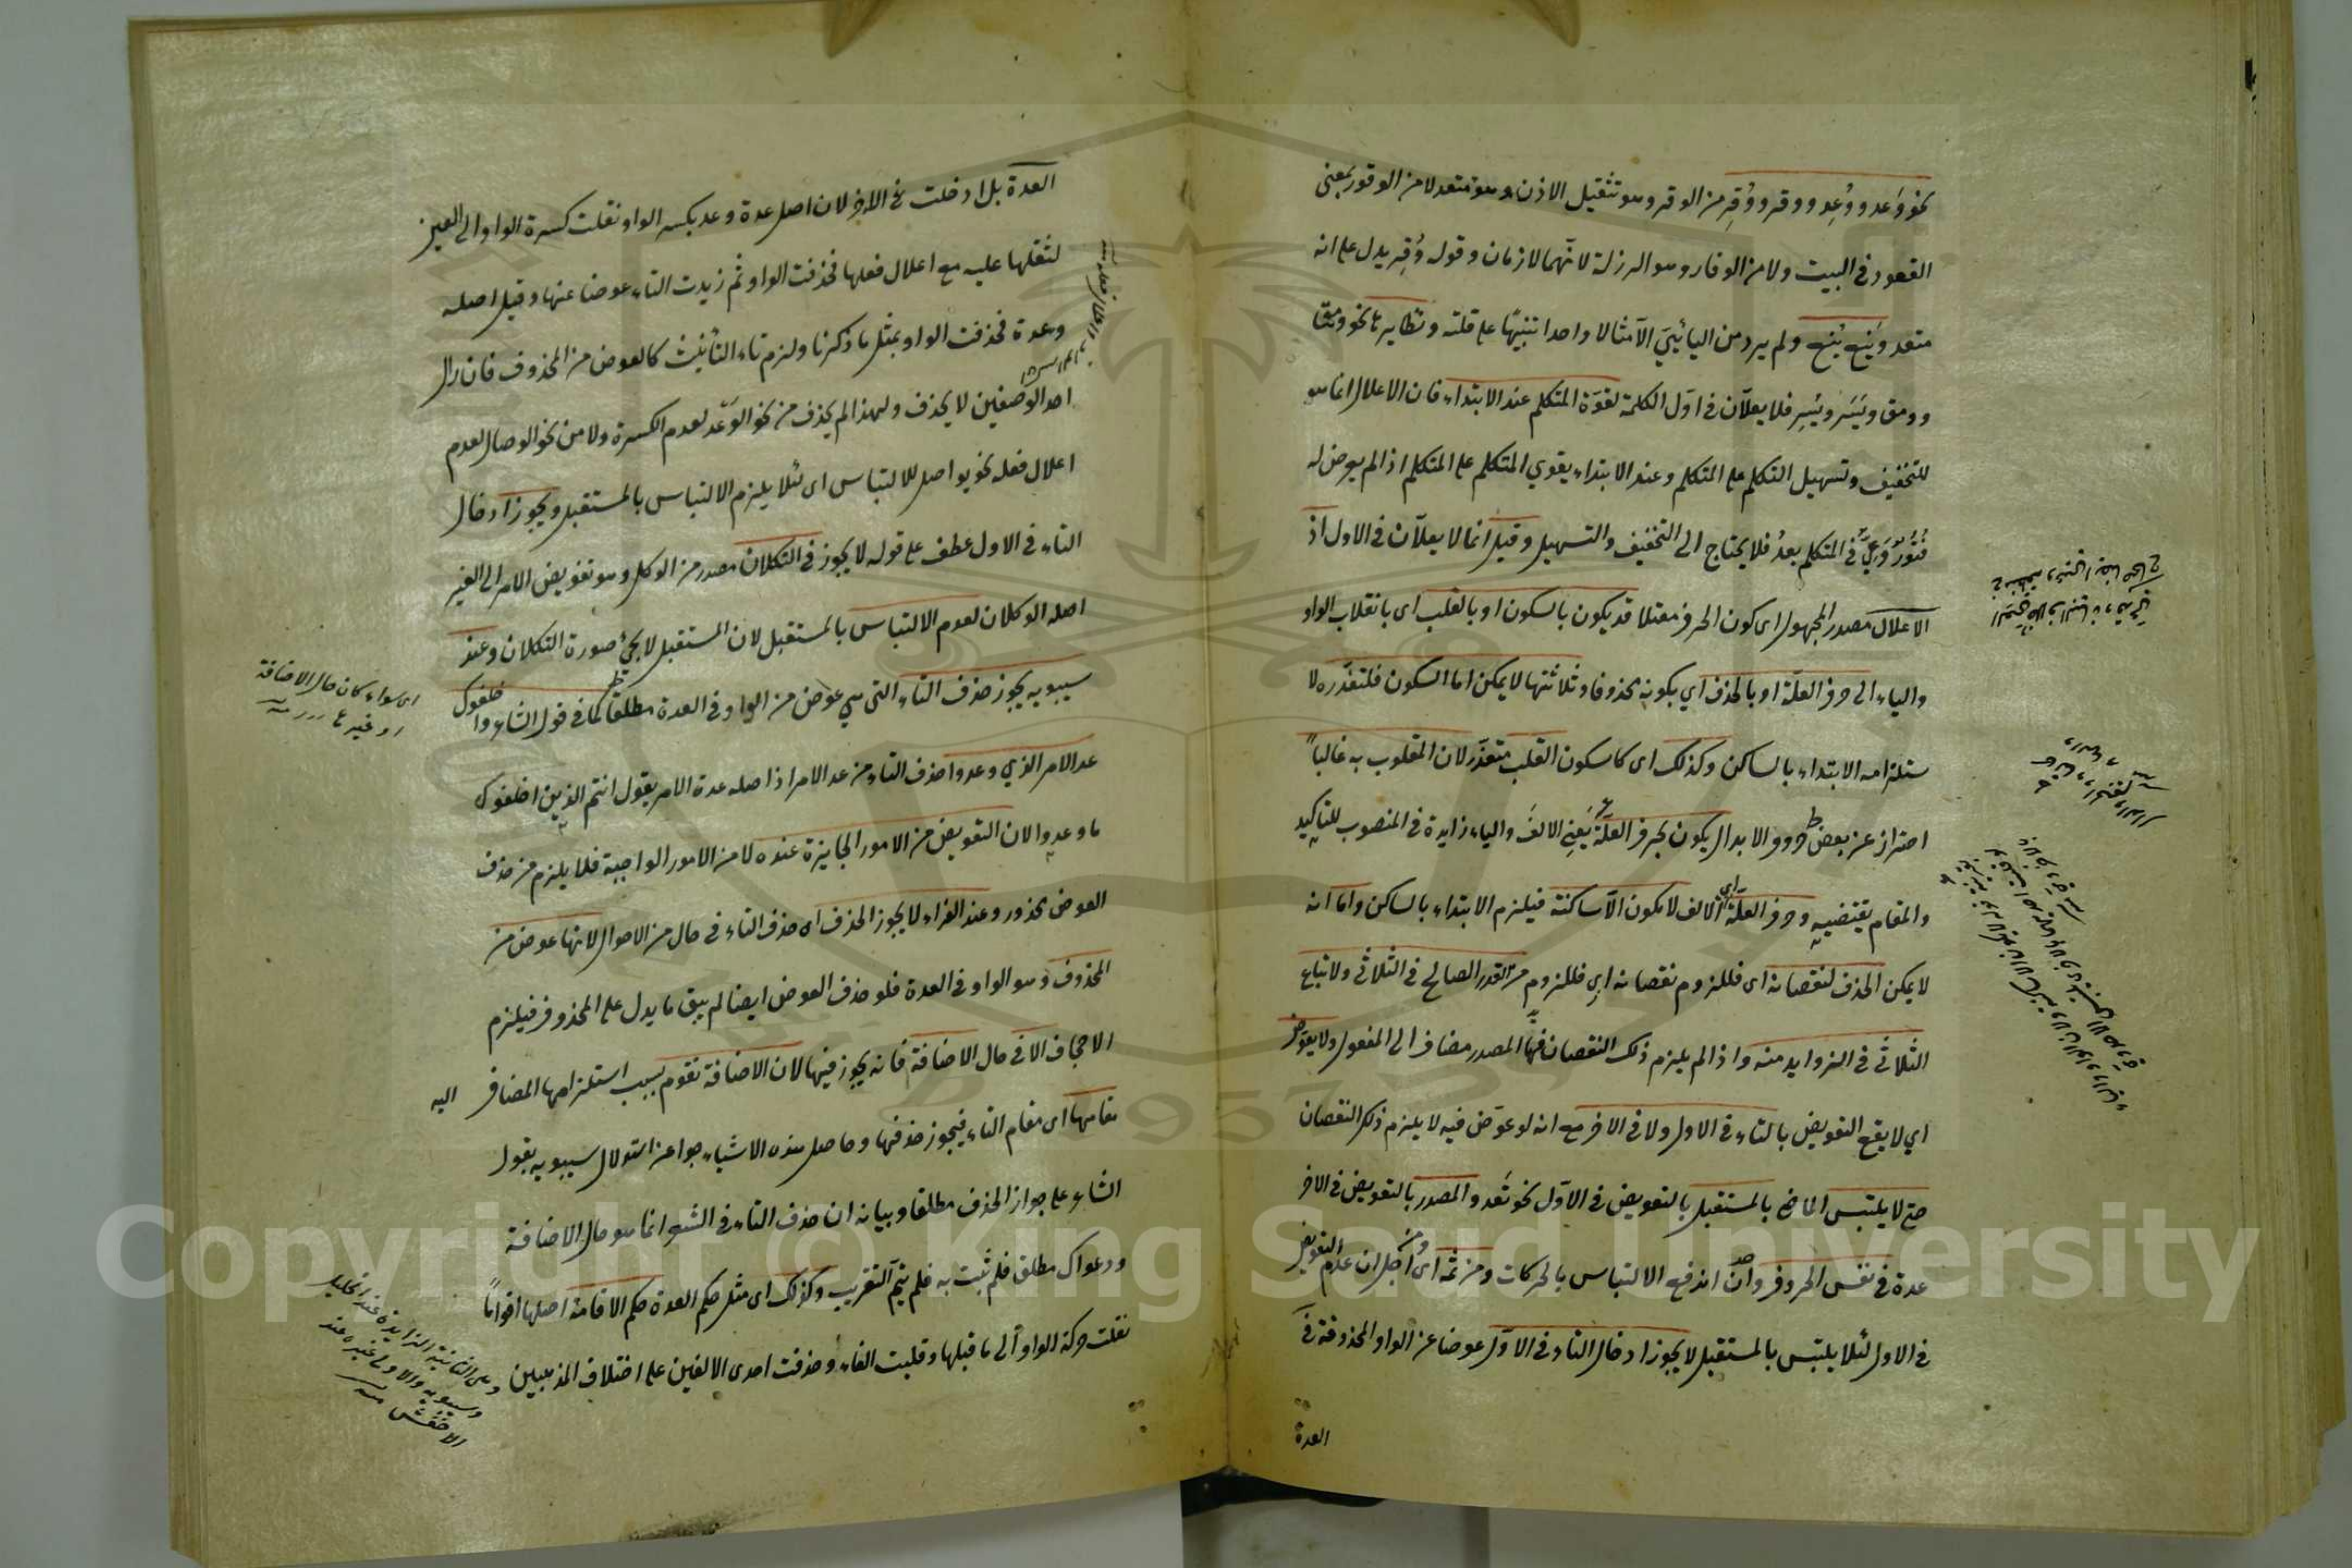 نحو وَعد ووُعِد ووقر ووُقِر من الوقر وهو تثقيل الاذن وهو متعد لا من الوقور بمعنى
القعود في البيت ولا من الوقار وهو الرزلة لانهما لازمان وقوله وُقِر يدل على انه
متعد ويَنِع يُنِع ولم يرد من اليائي الا مثالا واحدا تنبيهًا على قلته ونظايرها نحو ومقا
وومق ويَسَر ويَسِر فلا يعلّان في اوّل الكلمة لقوّة المتكلم عند الابتداء فان الاعلال انما هو
للتخفيف وتسهيل التكلم على المتكلم وعند الابتداء يقوي المتكلم على المتكلم اذ الم يعرض له
فتور وعيّ في المتكلم بعدُ فلا يحتاج الى التخفيف والتسهيل وقيل انما لا يعلّان في الاول اذ
الاعلال مصدر المجهول اى كون الحرف معتلا قد يكون بالسكون او بالقلب اى بانقلاب الواو
والياء الى حرف العلّة او بالحذف اي بكونه محذوفا وثلاثتها لا يمكن اما السكون فلتعذّره لا
ستلزامه الابتداء بالساكن وكذلك اى كالسكون القلب متعذّر لان المقلوب به غالباً
احتراز عن بعض حروف الابدال يكون بحرف العلّة يَعِني الالفَ والياء زايدة في المنصوب للتاكيد
والمقام يقتضيه وحرف العلّة اى الالف لا يكون الّا ساكنة فيلزم الابتداء بالساكن واما انه
لا يمكن الحذف لنقصانه اى فللزوم نقصانه اىِ فللزوم من القدر الصالح في الثلاثي ولاتباع
الثّلاثّي في الزوايد منه واذ الم يلزم ذلك النقصان فيها المصدر مضاف الى المفعول ولا يعوّض
اي لا يقع التعويض بالتاء في الاول ولا في الاخر مع انه لو عوّض فيه لا يلزم ذلك النقصان
حتى لا يلتبس الماضي بالمستقبل بالتعويض في الاوّل نحو تَعد والمصدر بالتعويض في الاخر
عدة في نفس الحروف وان اندفع الالتباس بالحركات ومن ثمه اى ومن اجل ان عدم التعويض
في الاول لئلا يلتبس بالمستقبل لا يجوز ادخال التاء في الاوّل عوضا عن الواو المحذوفة في
العدة
العدة بل ادخلت في الاخر لان اصل عدة وعد بكسر الواو نقلت كسرة الواو الى العين
لثقلها عليه مع اعلال فعلها فحذفت الواو ثم زيدت التاء عوضا عنها وقيل اصله
وعدة فحذفت الواو بمثل ما ذكرنا ولزم تاء التأنيث كالعوض من المحذوف فان زال
احد الوصفين لا يحذف ولهذا لم يحذف من نحو الوَعْد لعدم الكسرة ولا من نحو الوصال لعدم
اعلال فعله نحو يواصل للالتباس اى لئلا يلزم الالتباس بالمستقبل ويجوز ادخال
التاء في الاول عطف على قوله لا يجوز في التكلان مصدر من الوكل وهو تفويض الامر الى الغير
اصله الوكلان لعدم الالتباس بالمستقبل لان المستقبل لا يجئ صورة التكلان وعند
سيبويه يجوز حذف التاء التي هي عوض من الواو في العدة مطلقا كما في قول الشاعر واخلفوك
اى سواء كان حال الاضافة
او غيرها منه
عد الامر الذي وعدوا حذف التاء من عد الامر اذ اصله عدة الامر يقول انتم الذين اخلفوك
ما وعدوا لان التعويض من الامور الجايزة عنده لا من الامور الواجبة فلا يلزم من حذف
العوض محذور وعند الفراء لا يجوز الحذف اى حذف التاء في حال من الاحوال لانها عوض من
المحذوف وهو الواو في العدة فلو حذف العوض ايضا لم يبق ما يدل على المحذوف فيلزم
الاجحاف الا في حال الاضافة فانه يجوز فيها لان الاضافة تقوم بسبب استلزامها المضاف اليه
مقامها اى مقام التاء فيجوز حذفها وحاصل هذه الاشياء جواب عن استدلال سيبويه بقول
الشاعر على جواز الحذف مطلقا وبيانه ان حذف التاء في الشعر انما هو حال الاضافة
ودعواك مطلق فلم ثبت به فلم يتمّ التقريب وكذلك اى مثل حكم العدة حكم الاقامة اصلها اقواماً
نقلت حركة الواو الى ما قبلها وقلبت الفاء وحذفت احدى الالفين على اختلاف المذهبين
وهى الثانية الزايدة عند الخليل
وسيبويه والاولى غيره عند
الاخفش منه
Copyright © King Saud University
1957